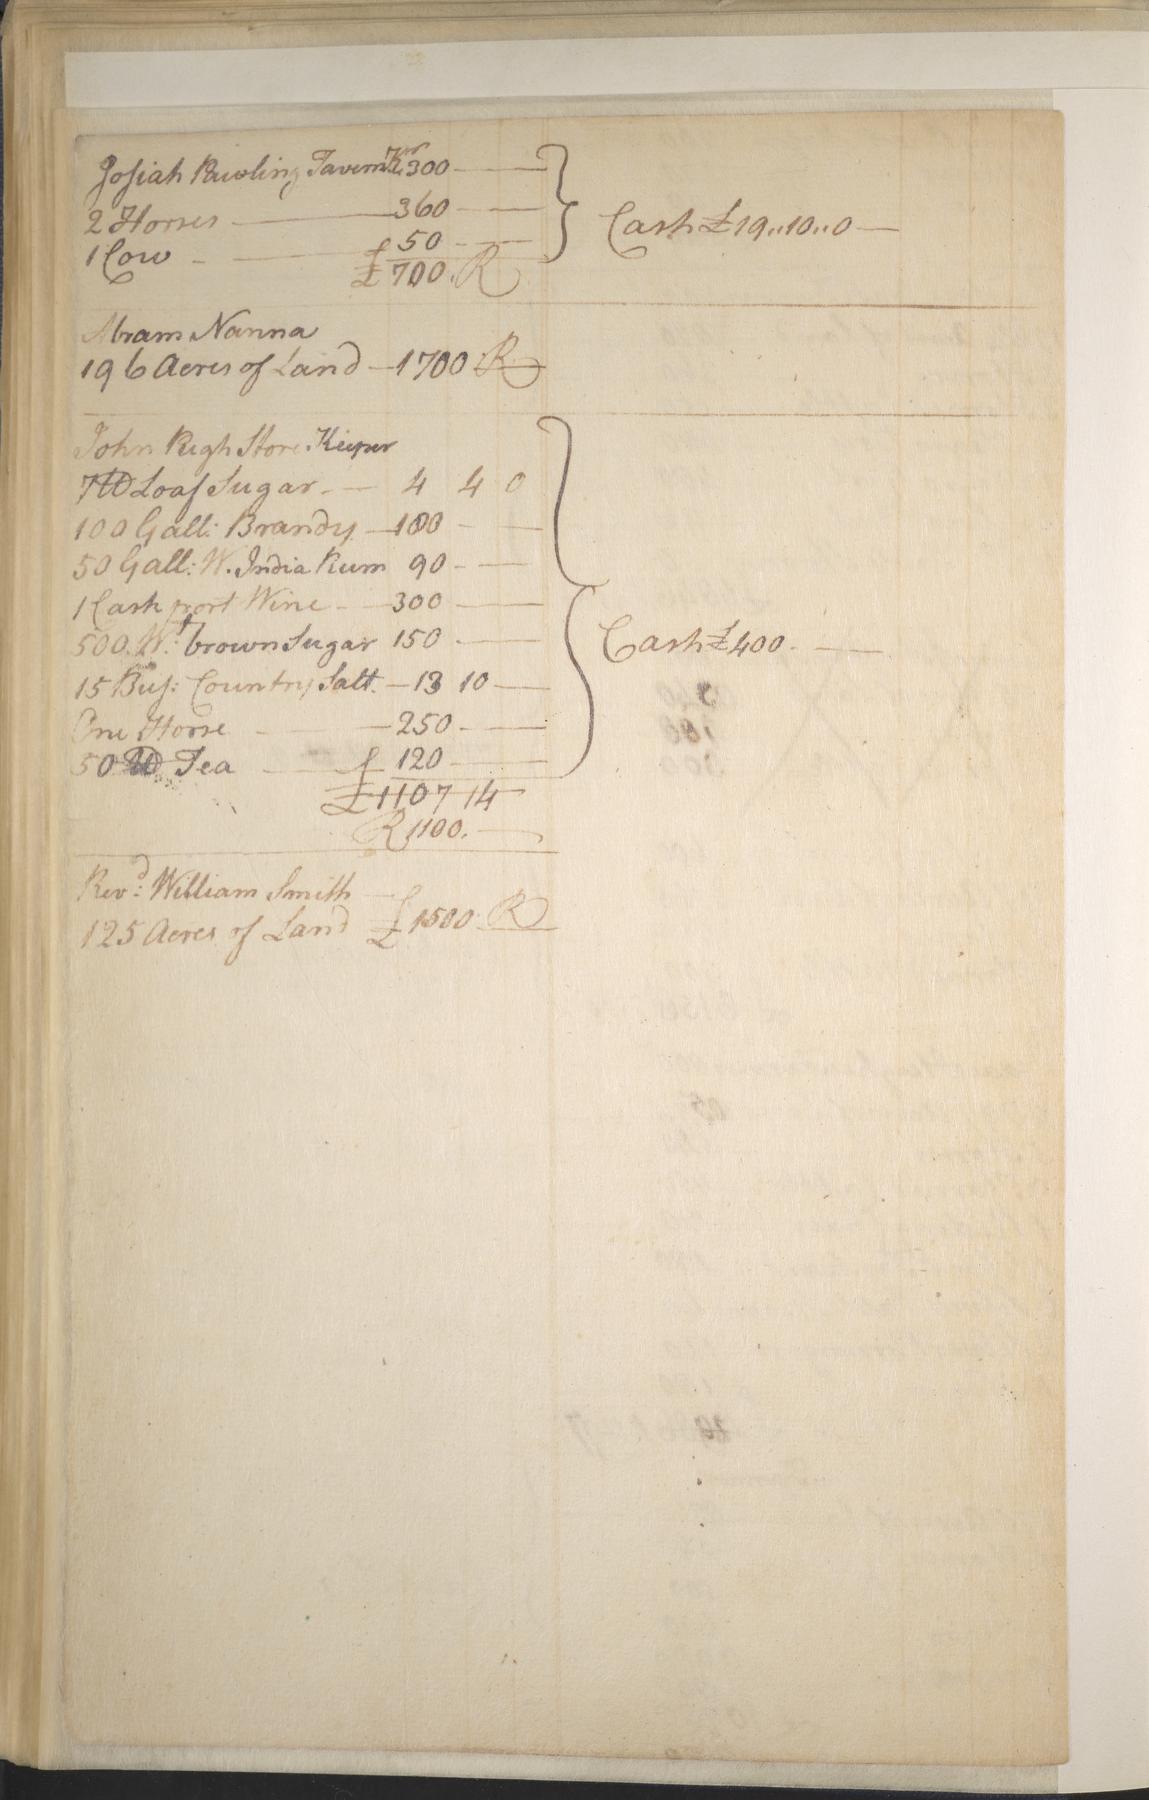 Josiah Rawling Tavern Kr 300
2 Horses 360
1 Cow 50
£ 700. R
Cash £19..10..0
Abram Nanna
196 Acres of Land 1700 R
John Pugh Store Keeper
7 lb Loaf Sugar 4 4 0
100 Gall: Brandy 100
50 Gall: W. India Rum 90
1 Cask port Wine 300
500 Wt: brown Sugar 150
15 Bus: Country Salt 13 10
One Horse 250
50 lb Tea 120
£1107 14
R 1100.
Cash £400.
Revd: William Smith
125 Acres of Land £ 1500 R